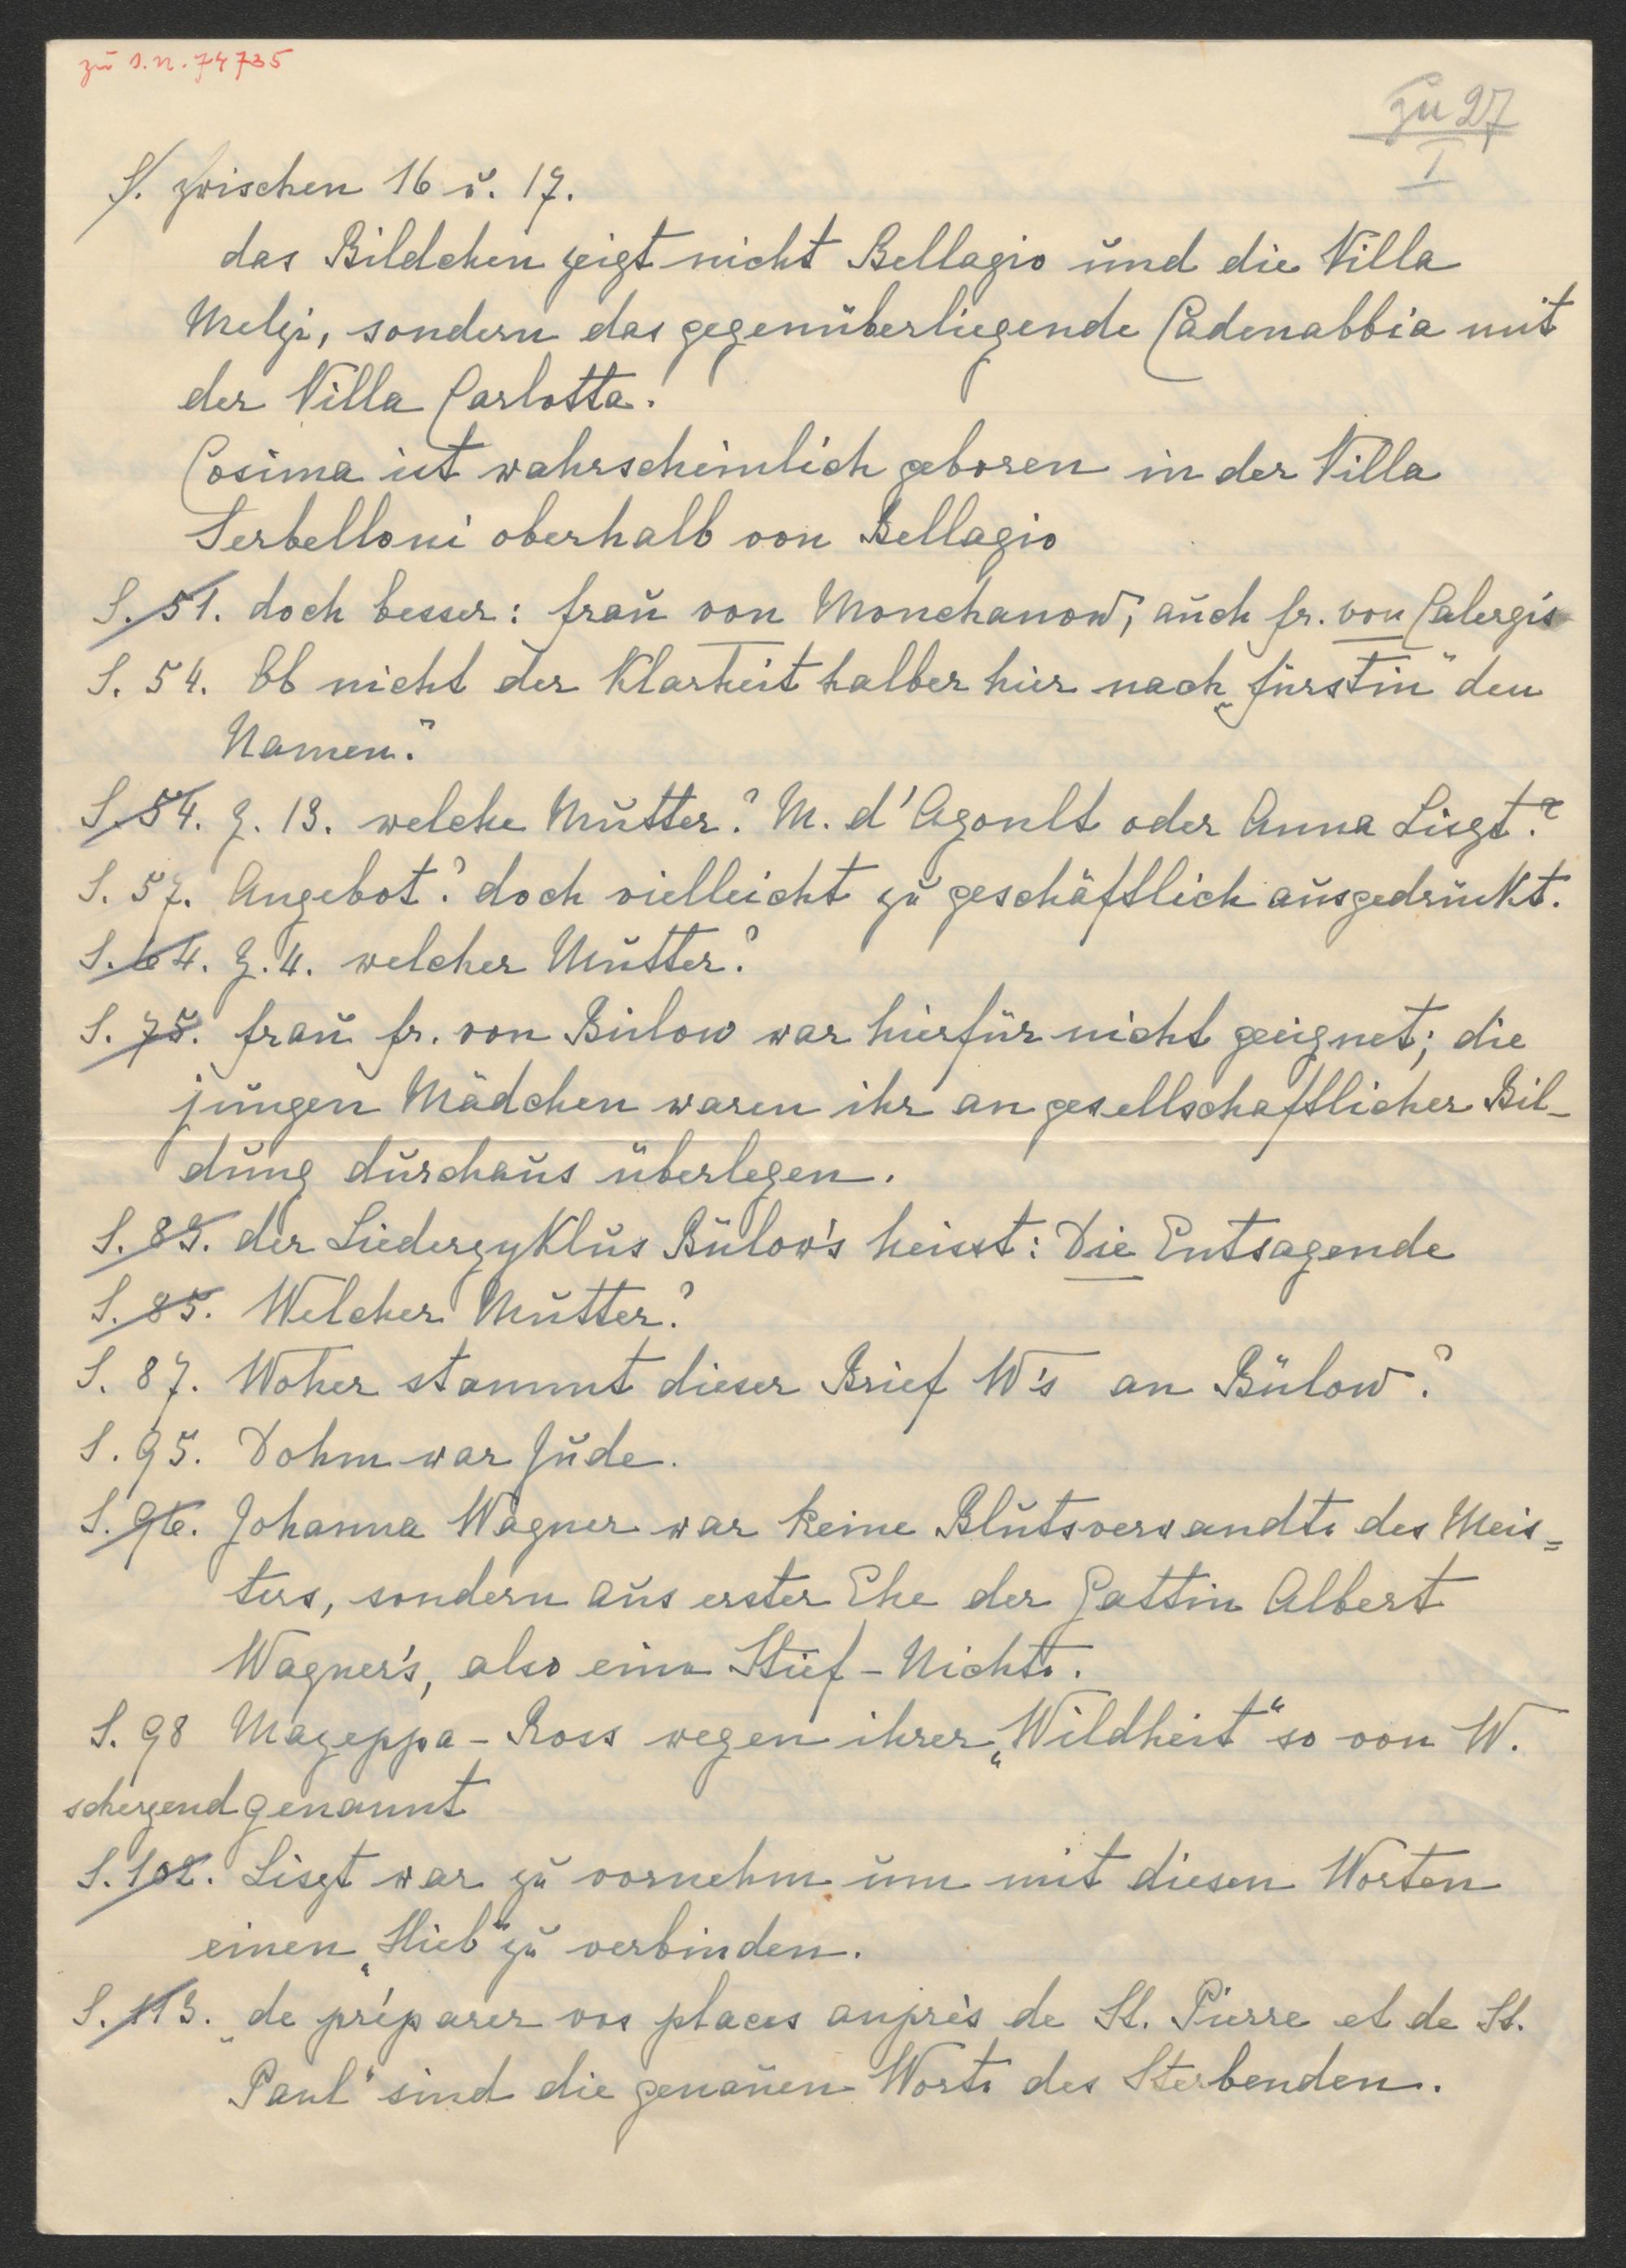 zu I. N. 74735
zu 27
I
S. zwischen 16 u. 17.
das Bildchen zeigt nicht Bellagio und die Villa
Melzi, sondern das gegenüberliegende Cadenabbia mit
der Villa Carlotta.
Cosima ist wahrscheinlich geboren in der Villa
Serbelloni oberhalb von Bellagio
S. 51. doch besser: Frau von Monchanow, auch Fr. von Calergis
S. 54. Ob nicht der Klarheit halber hier nach „Fürstin" den
Namen?
S. 54. Z. 13. welche Mutter? M. d'Agoult oder Anna Liszt?
S. 57. Angebot? doch vielleicht zu geschäftlich ausgedrückt.
S. 64. Z. 4. welcher Mutter?
S. 75. Frau Fr. von Bülow war hierfür nicht geeignet; die
jungen Mädchen waren ihr an gesellschaftlicher Bil-
dung durchaus überlegen.
S. 85. der Liederzyklus Bülow's heisst: Die Entsagende
S. 85. Welcher Mutter?
S. 87. Woher stammt dieser Brief W's an Bülow?
S. 95. Dohm war Jude.
S. 96. Johanna Wagner war keine Blutsverwandte des Meis=
ters, sondern aus erster Ehe der Gattin Albert
Wagner's, also eine Stief-Nichte.
S. 98 Mazeppa-Ross wegen ihrer „Wildheit" so von W.
scherzend genannt
S. 102. Liszt war zu vornehm um mit diesen Worten
einen „Hieb" zu verbinden.
S. 113. „de préparer vos places auprès de St. Pierre et de St.
Paul" sind die genauen Worte des Sterbenden.